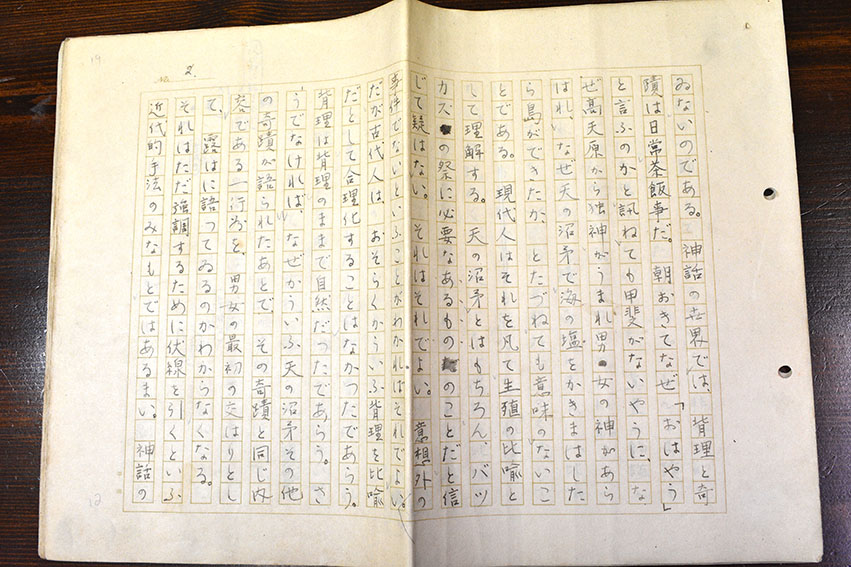 2.
ゐないのである。 神話の世界では 背理と奇
蹟は日常茶飯事だ。 朝おきてなぜ「おはやう」
と言ふのかと訊ねても甲斐がないやうに、な
ぜ髙天原から独神がうまれ男女の神があら
はれ、なぜ天の沼矛で海の塩をかきまはした
ら島ができたか、とたづねても意味のないこ
とである。 現代人はそれを凡て生殖の比喩と
して理解する。 天の沼矛とはもちろん、バツ
カスの祭に必要なあるもののことだと信
じて疑はない。それはそれでよい。 意想外の
事件でないといふことがわかればそれでよい。
だが古代人は、おそらくかういふ背理を比喩
だとして合理化することはなかつたであらう。
背理は背理のままで自然だつたであらう。さ
うでなければ、なぜかういふ天の沼矛その他
の奇蹟が語られたあとで、その奇蹟と同じ内
容である一行為を、男女の最初の交はりとし
て、露はに語つてゐるのかわからなくなる。
それはただ強調するために伏線を引くといふ
近代的手法のみなもとではあるまい。 神話の
19
12